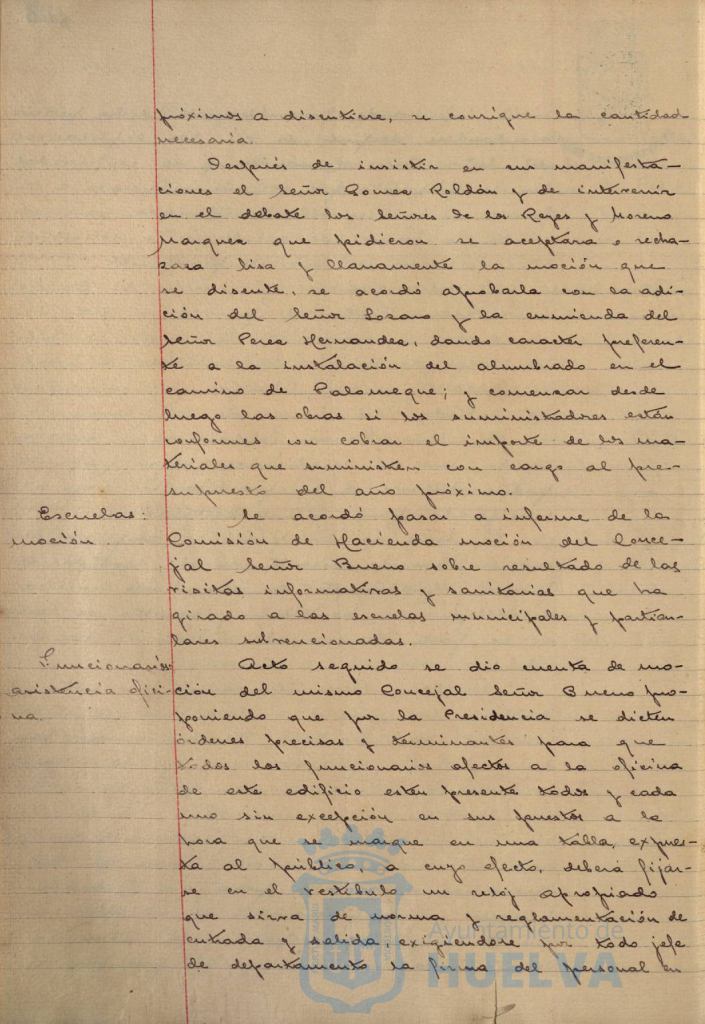 próximos a discutirse, se consigne la cantidad
necesaria.
Después de insistir en sus manifesta-
ciones el Señor Gomez Roldán y de intervenir
en el debate los señores de los Reyes y Moreno
Marquez que pidieron se aceptara o recha-
zara lisa y llanamente la moción que
se discute, se acordó aprobarla con la adi-
ción del Señor Lozano y la enmienda del
Señor Perez Hernandez, dando caracter preferen-
te a la instalación del alumbrado en el
camino de Palomeque; y comenzar desde
luego las obras si los suministradores están
conformes con cobrar el importe de los ma-
teriales que suministren con cargo al pre-
supuesto del año próximo.
Escuelas:
moción.
Se acordó pasar a informe de la
Comisión de Hacienda moción del Conce-
jal Señor Bueno sobre resultado de las
visitas informativas y sanitarias que ha
girado a las escuelas municipales y particu-
lares subvencionadas.
Funcionarios:
asistencia ofici-
na.
Acto seguido se dio cuenta de mo-
ción del mismo Concejal Señor Bueno pro-
poniendo que por la Presidencia se dicten
órdenes precisas y terminantes para que
todos los funcionarios afectos a la oficina
de este edificio esten presente todos y cada
uno sin excepción en sus puestos a la
hora que se marque en una tabla, expues-
ta al público, a cuyo efecto, deberá fijar-
se en el vestibulo un reloj apropiado
que sirva de norma y reglamentación de
entrada y salida, exigiendose por todo jefe
de departamento la firma del personal en
Ayuntamiento de
HUELVA